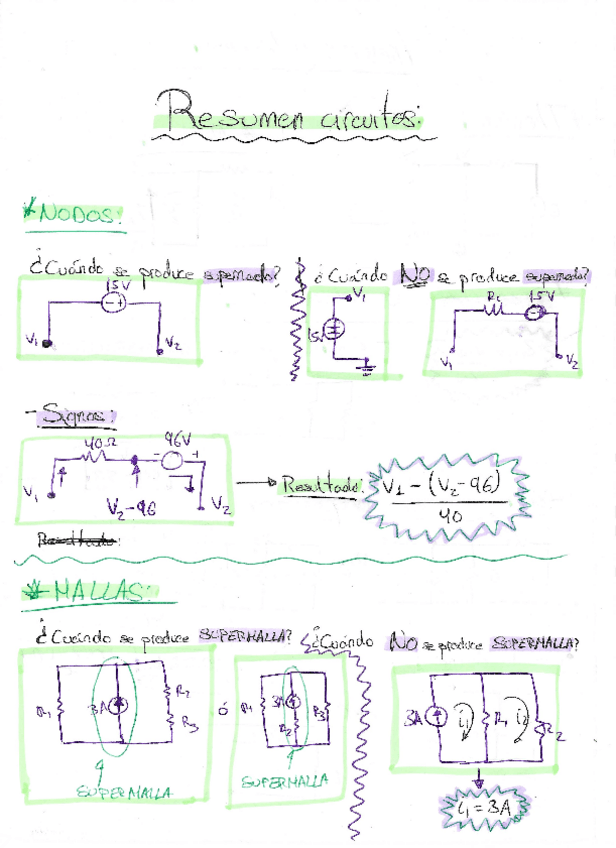 Resumen circuitos:
* NODOS:
¿Cuándo se produce supernodo?
¿Cuándo NO se produce supernodo?
15V
V1
V2
V1
15V
R1
15V
V1
V2
- Signos:
40Ω
96V
- +
V1
V2-96
V2
→ Resultado:
V1 - (V2-96)
40
Resultado:
* MALLAS:
¿Cuándo se produce SUPERMALLA?
¿Cuándo NO se produce SUPERMALLA?
R1
3A
R2
R3
SUPERMALLA
ó
R1
3A
R2
R3
SUPERMALLA
3A
i1
R1
i2
R2
i1 = 3A